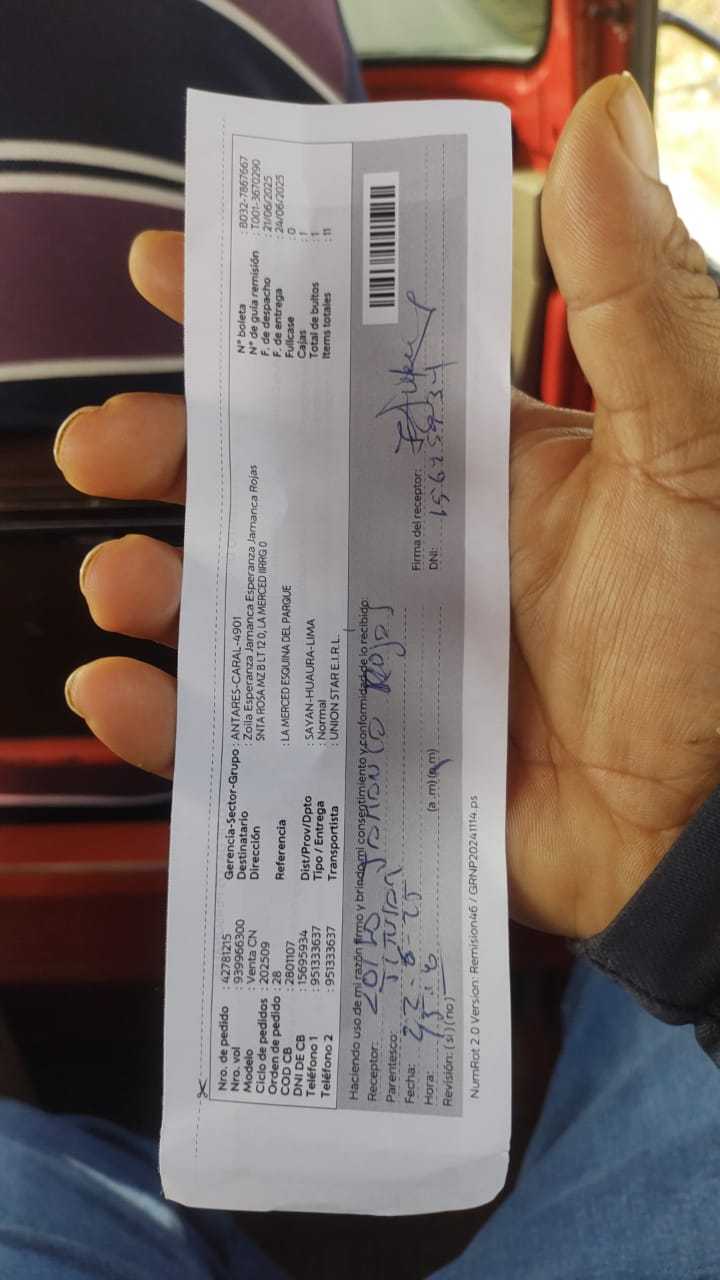 Nro. de pedido : 42781215
Nro. vol : 939966300
Modelo : Venta CN
Ciclo de pedidos : 202509
Orden de pedido : 28
COD CB : 2801107
DNI DE CB : 15695934
Teléfono 1 : 951333637
Teléfono 2 : 951333637
Gerencia-Sector-Grupo : ANTARES-CARAL-4901
Destinatario : Zoila Esperanza Jamanca Esperanza Jamanca Rojas
Dirección SNTA ROSA MZ B LT 12 0, LA MERCED IIRRG 0
Referencia : LA MERCED ESQUINA DEL PARQUE
Dist/Prov/Dpto : SAYAN-HUAURA-LIMA
Tipo / Entrega : Normal
Transportista : UNION STAR E.I.R.L.
N° boleta : B032-7867667
N° de guía remisión : T001-3670290
F. de despacho : 21/06/2025
F. de entrega : 24/06/2025
Fullcase : 0
Cajas : 1
Total de bultos : 1
Items totales : 11
Haciendo uso de mi razón firmo y brindo mi consentimiento y conformidad de lo recibido:
Receptor: Rojas
Parentesco: Titular
Fecha:
Hora: (a.m)(p.m)
Revisión: (si)(no)
Firma del receptor:
DNI:
NumRot 2.0 Version: Remision46 / GRNP20241114.ps